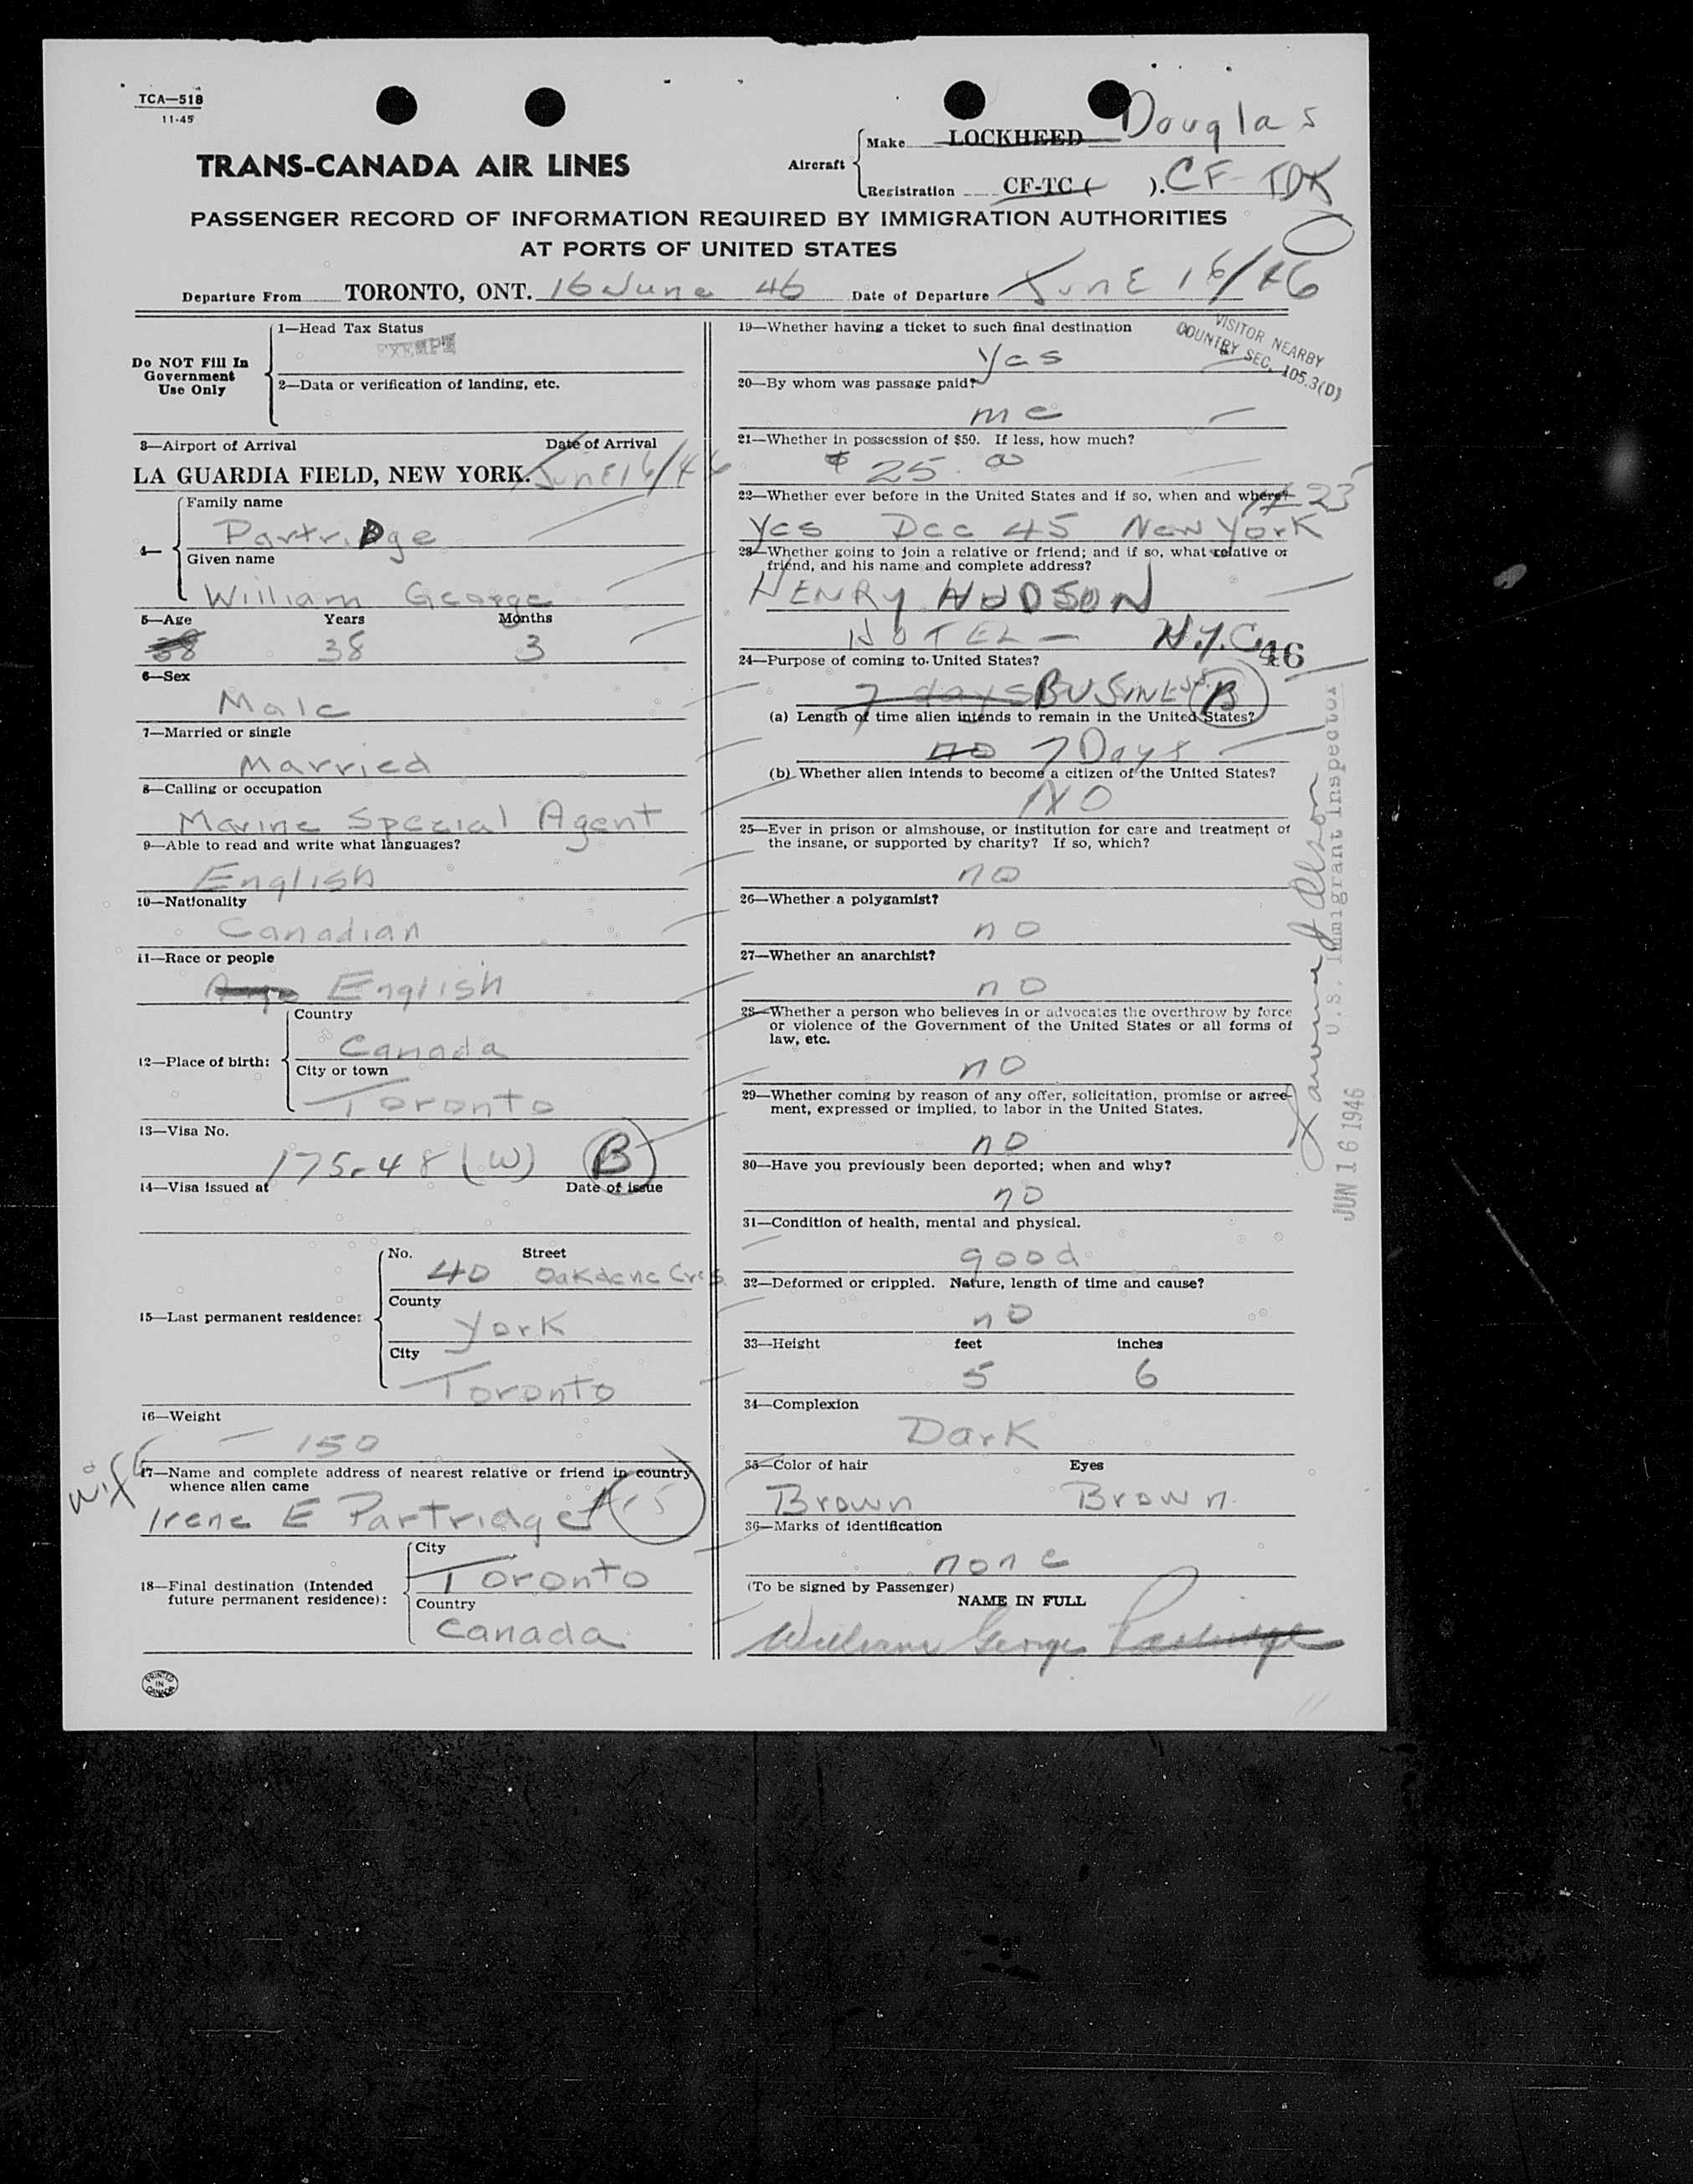 TCA—518
11-45
TRANS-CANADA AIR LINES
Aircraft
Make LOCKHEED Douglas
Registration CF-TC ( ). CF-TDK
PASSENGER RECORD OF INFORMATION REQUIRED BY IMMIGRATION AUTHORITIES
AT PORTS OF UNITED STATES
Departure From TORONTO, ONT. 16 June 46 Date of Departure JunE 16/46
Do NOT Fill In
Government
Use Only
1—Head Tax Status
EXEMPT
2—Data or verification of landing, etc.
3—Airport of Arrival Date of Arrival
LA GUARDIA FIELD, NEW YORK. JunE 16/46
4—
Family name
Partridge
Given name
William George
5—Age Years Months
38 38 3
6—Sex
Male
7—Married or single
Married
8—Calling or occupation
Marine Special Agent
9—Able to read and write what languages?
English
10—Nationality
Canadian
11—Race or people
English
12—Place of birth:
Country
Canada
City or town
Toronto
13—Visa No.
175.48 (W) B
14—Visa issued at Date of issue
15—Last permanent residence:
No. Street
40 Oakdene Cres.
County
York
City
Toronto
16—Weight
150
wife
17—Name and complete address of nearest relative or friend in country
whence alien came
Irene E Partridge
18—Final destination (Intended
future permanent residence):
City
Toronto
Country
Canada
PRINTED
IN
CANADA
19—Whether having a ticket to such final destination
yes
VISITOR NEARBY
COUNTRY SEC. 105.3(D)
20—By whom was passage paid?
me
21—Whether in possession of $50. If less, how much?
$ 25.00
22—Whether ever before in the United States and if so, when and where?
yes Dec 45 New York
23—Whether going to join a relative or friend; and if so, what relative or
friend, and his name and complete address?
HENRY HUDSON
HOTEL — N.Y.C.
46
24—Purpose of coming to United States?
7 days BUSINESS B
(a) Length of time alien intends to remain in the United States?
no 7 Days
(b) Whether alien intends to become a citizen of the United States?
NO
25—Ever in prison or almshouse, or institution for care and treatment of
the insane, or supported by charity? If so, which?
no
26—Whether a polygamist?
no
27—Whether an anarchist?
no
28—Whether a person who believes in or advocates the overthrow by force
or violence of the Government of the United States or all forms of
law, etc.
no
29—Whether coming by reason of any offer, solicitation, promise or agree-
ment, expressed or implied, to labor in the United States.
no
30—Have you previously been deported; when and why?
no
31—Condition of health, mental and physical.
good
32—Deformed or crippled. Nature, length of time and cause?
no
33—Height feet inches
5 6
34—Complexion
Dark
35—Color of hair Eyes
Brown Brown
36—Marks of identification
none
(To be signed by Passenger)
NAME IN FULL
William George Partridge
U.S. Immigrant Inspector
JUN 16 1946